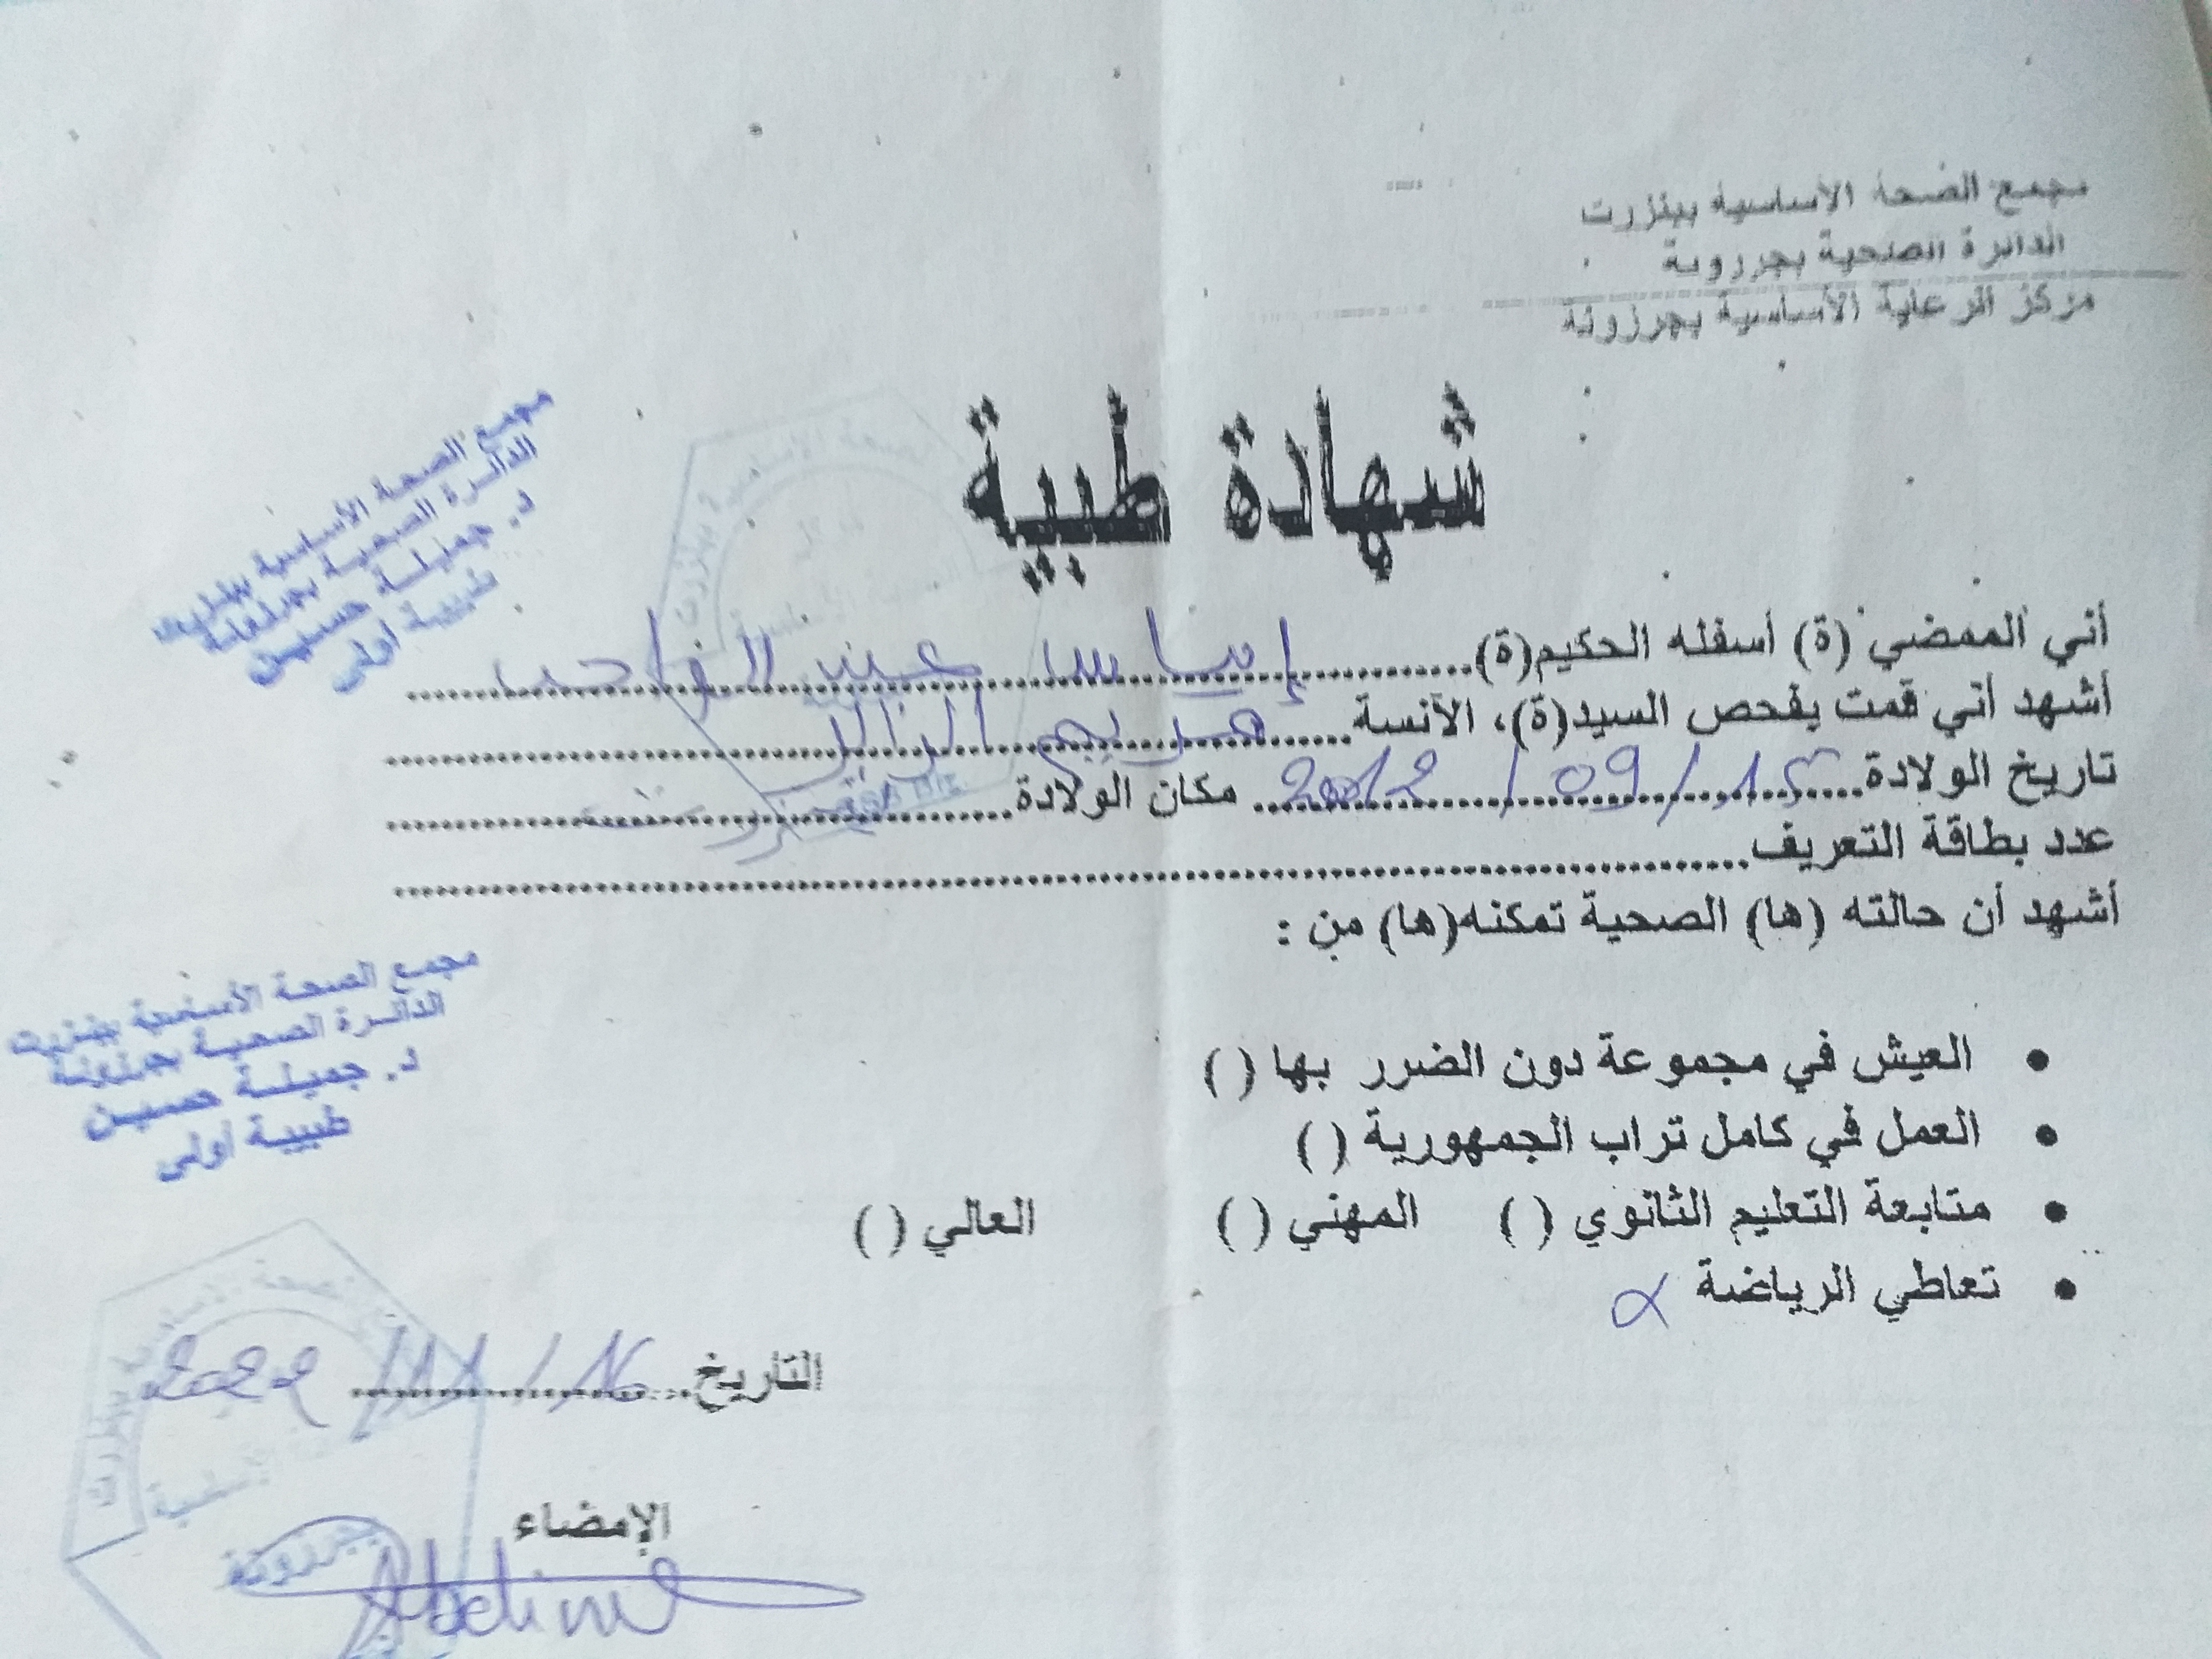 مجمع الصحة الأساسية ببنزرت
الدائرة الصحية بجرزونة
مركز الرعاية الأساسية بجرزونة
شهادة طبية
مجمع الصحة الأساسية ببنزرت
الدائرة الصحية بجرزونة
د. جميلة حسين
طبيبة أولى
أني الممضي (ة) أسفله الحكيم(ة) إيناس عبد الواحد
أشهد أني قمت بفحص السيد(ة)، الآنسة مريم
تاريخ الولادة 15/09/2012 مكان الولادة بنزرت
عدد بطاقة التعريف
أشهد أن حالته (ها) الصحية تمكنه(ها) من :
مجمع الصحة الأساسية ببنزرت
الدائرة الصحية بجرزونة
د. جميلة حسين
طبيبة أولى
• العيش في مجموعة دون الضرر بها ( )
• العمل في كامل تراب الجمهورية ( )
• متابعة التعليم الثانوي ( ) المهني ( ) العالي ( )
• تعاطي الرياضة
التاريخ 16/11/2022
الإمضاء
بجرزونة